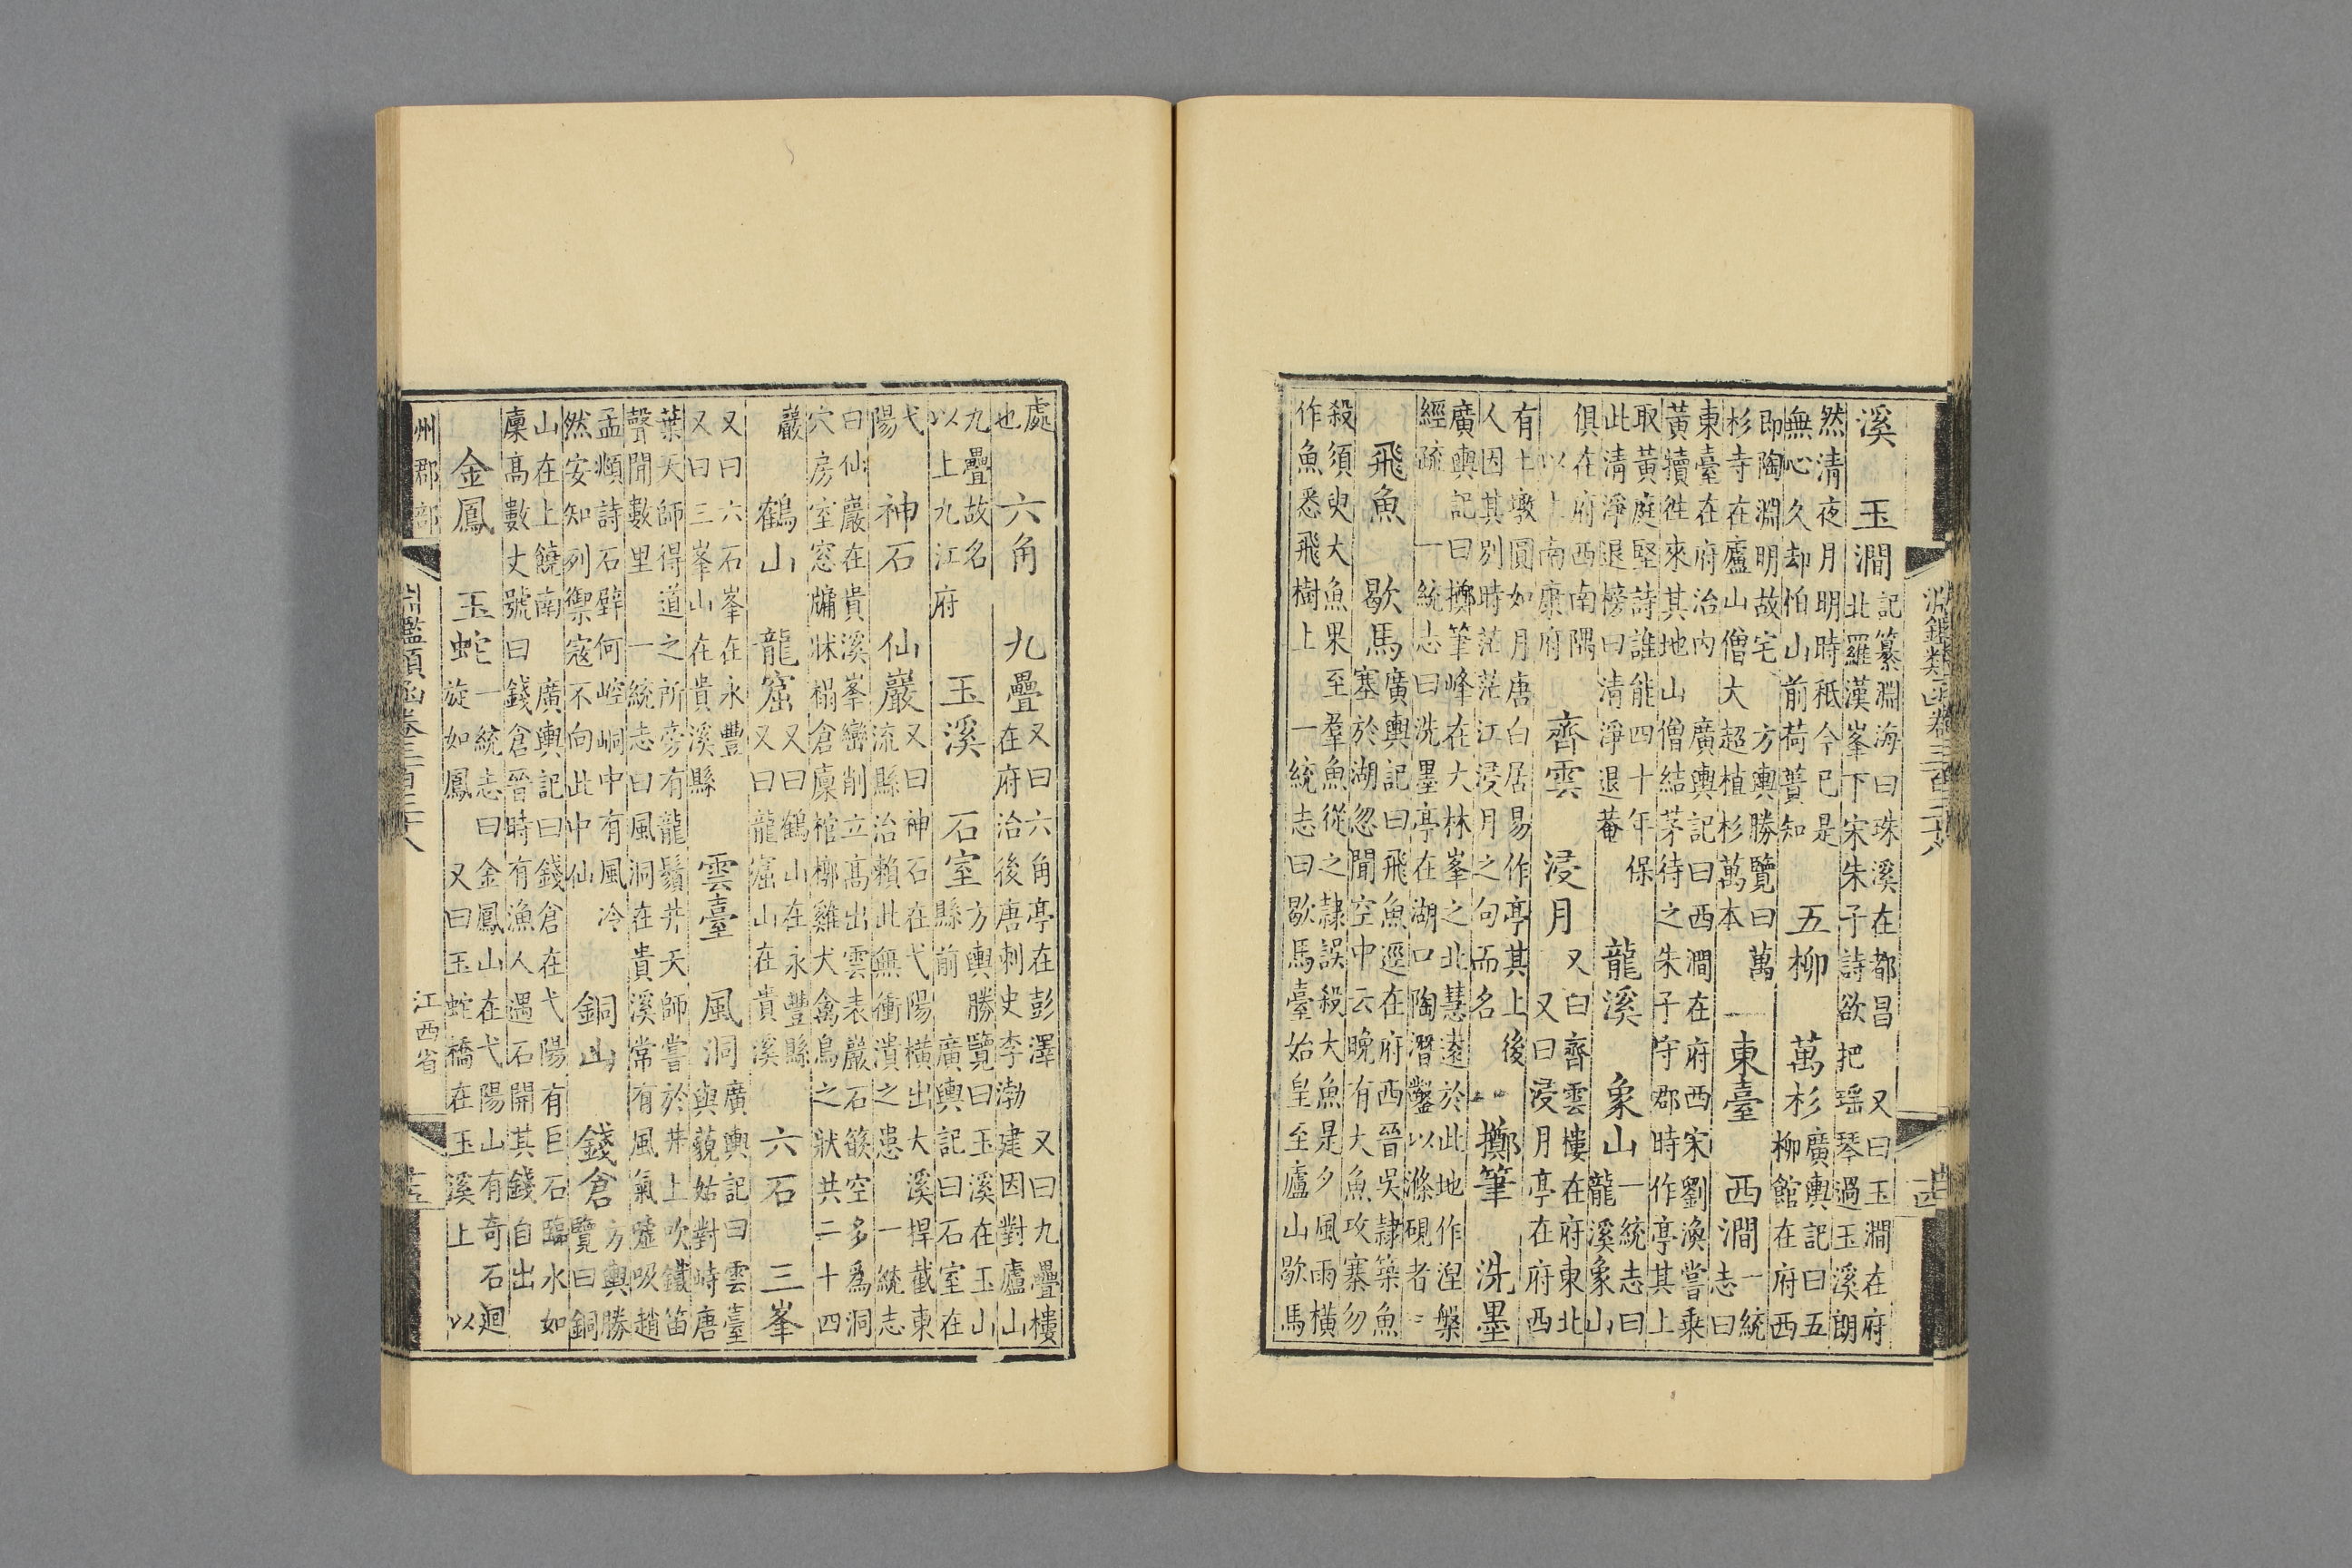 淵鑑類函卷三百三十八
溪 玉澗
記纂淵海曰珠溪在都昌 又曰玉澗在府
北羅漢峯下宋朱子詩欲把瑤琴過玉溪朗
然清夜月明時秪今已是
無心久却怕山前荷蕢知
五柳 萬杉
廣輿記曰五
柳館在府西
即陶淵明故宅 方輿勝覽曰萬
杉寺在廬山僧大超植杉萬本
東臺 西澗
一統
志曰
東臺在府治內 廣輿記曰西澗在府西宋劉渙嘗乘
黃犢徃來其地山僧結茅待之朱子守郡時作亭其上
取黃庭堅詩誰能四十年保
此清淨退榜曰清淨退菴
龍溪 象山
一統志曰
龍溪象山
俱在府西南隅
以上南康府
齊雲 浸月
又曰齊雲樓在府東北
又曰浸月亭在府西
有土墩圓如月唐白居易作亭其上後
人因其別時茫茫江浸月之句而名
擲筆 洗墨
廣輿記曰擲筆峰在大林峯之北慧遠於此地作涅槃
經疏 一統志曰洗墨亭在湖口陶潛鑿以滌硯者
飛魚 歇馬
廣輿記曰飛魚逕在府西晉吳隸築魚
塞於湖忽聞空中云晚有大魚攻寨勿
殺須臾大魚果至羣魚從之隸誤殺大魚是夕風雨橫
作魚悉飛樹上 一統志曰歇馬臺始皇至廬山歇馬
處
也
六角 九疊
又曰六角亭在彭澤 又曰九疊樓
在府治後唐刺史李渤建因對廬山
九疊故名
以上九江府
玉溪 石室
方輿勝覽曰玉溪在玉山
縣前 廣輿記曰石室在
弋
陽
神石 仙巖
又曰神石在弋陽橫出大溪捍截東
流縣治賴此無衝潰之患 一統志
曰仙巖在貴溪峯巒削立高出雲表巖石簇空多爲洞
穴房室窓牖牀榻倉廩棺槨雞犬禽鳥之狀共二十四
巖
鶴山 龍窟
又曰鶴山在永豐縣
又曰龍窟山在貴溪
六石 三峯
又曰六石峯在永豐
又曰三峯山在貴溪縣
雲臺 風洞
廣輿記曰雲臺
與藐姑對峙唐
葉天師得道之所旁有龍鬚井天師嘗於井上吹鐵笛
聲聞數里 一統志曰風洞在貴溪常有風氣噓吸趙
孟頫詩石壁何崆峒中有風泠
然安知列禦寇不向此中仙
銅山 錢倉
方輿勝
覽曰銅
山在上饒南 廣輿記曰錢倉在弋陽有巨石臨水如
廩高數丈號曰錢倉晉時有漁人遇石開其錢自出
金鳳 玉蛇
一統志曰金鳳山在弋陽山有奇石廻
旋如鳳 又曰玉蛇橋在玉溪上 以
州郡部 淵鑑類函卷三百三十八 江西省